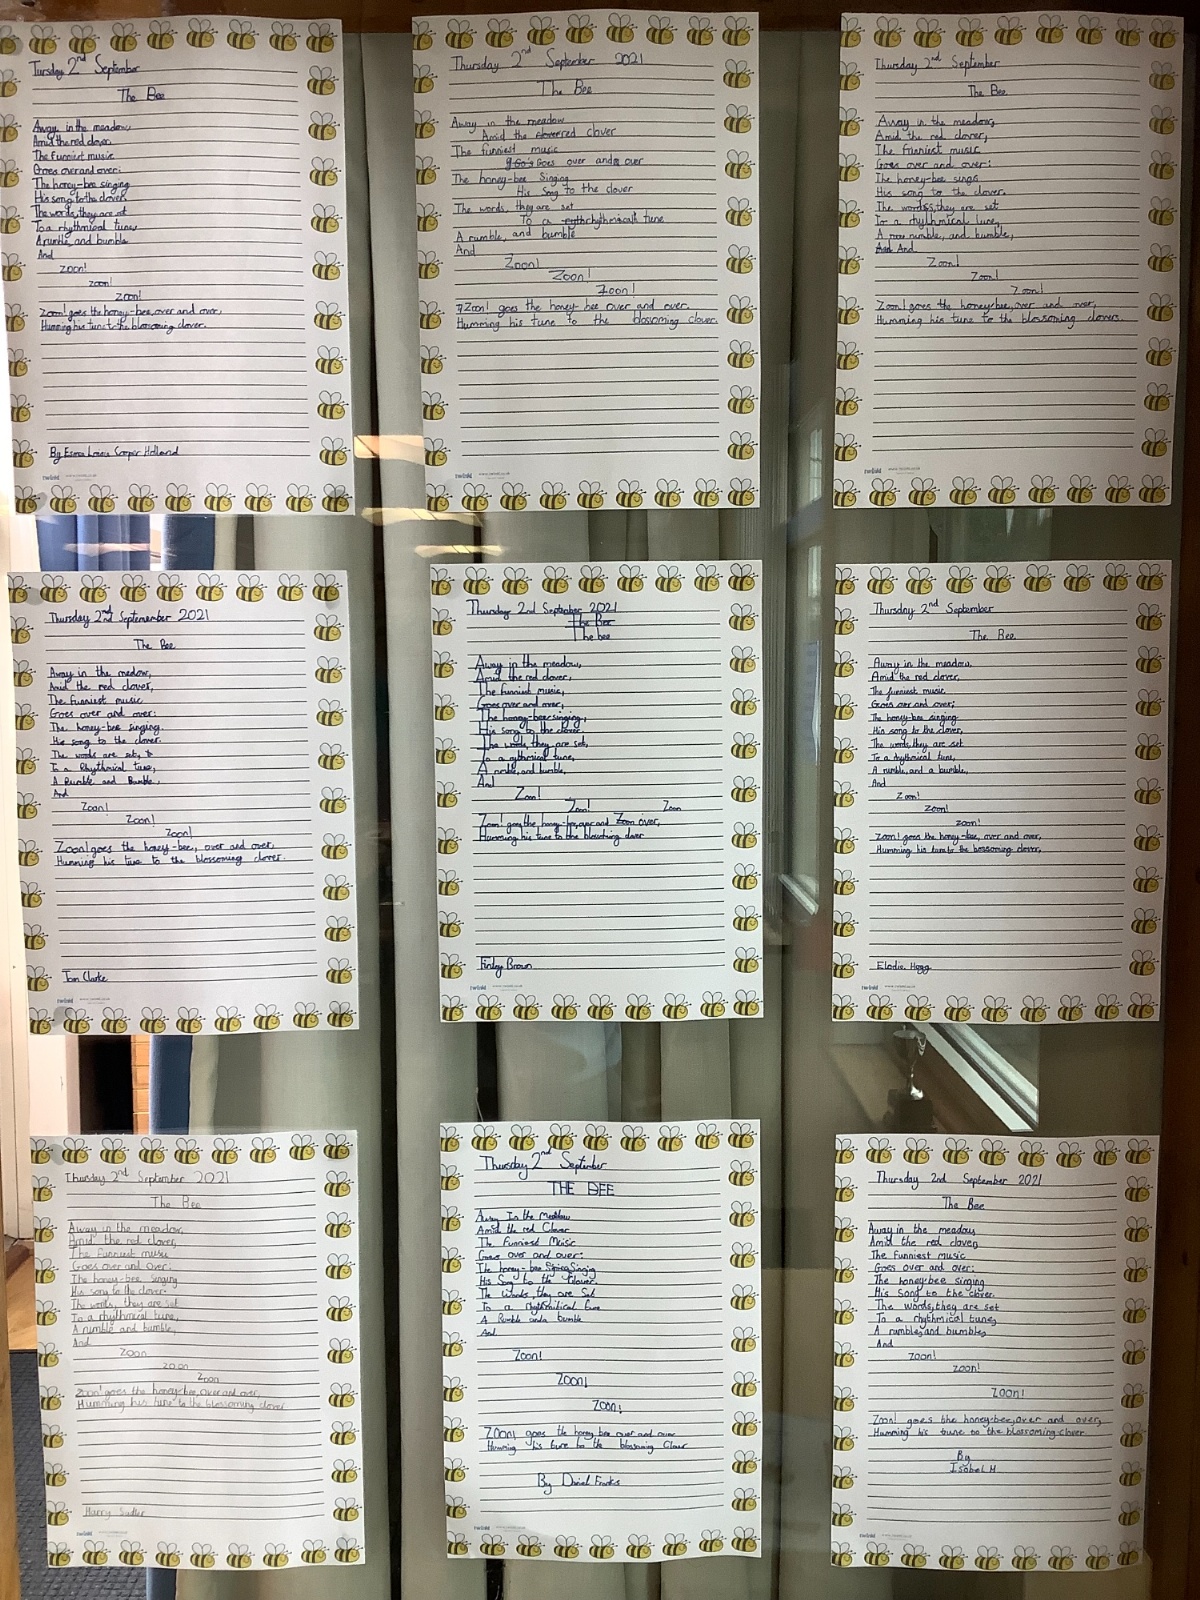 Tursday 2nd September
The Bee
Away in the meadow,
Amid the red clover,
The funniest music
Goes over and over:
The honey-bee singing
His song to the clover.
The words, they are set
To a rhythmical tune,
A rumble, and bumble
And
Zoon!
zoon!
Zoon!
Zoon! goes the honey-bee, over and over,
Humming his tune to the blossoming clover.
By Esma Cooper Holland
twinkl
Thursday 2nd September 2021
The Bee
Away in the meadow
Amid the red clover
The funniest music
Goes over and over
The honey-bee Singing
His Song to the clover
The words, they are set
To a rhythmical tune
A rumble, and bumble
And
Zoon!
Zoon!
Zoon!
Zoon! goes the honey-bee over and over.
Humming his tune to the blossoming clover.
twinkl
Thursday 2nd September
The Bee
Away in the meadow,
Amid the red clover,
The funniest music
Goes over and over:
The honey-bee sings
His song to the clover.
The words, they are set
To a rhythmical tune,
A rumble, and bumble,
And
Zoon!
Zoon!
Zoon!
Zoon! goes the honey-bee, over and over,
Humming his tune to the blossoming clovers.
twinkl
Thursday 2nd Septemember 2021
The Bee
Away in the medow,
Amid the red clover,
The funniest music
Goes over and over:
The honey-bee singing.
His song to the clover.
The words are set, to
To a Rhythmial tune,
A Rumble and Bumble,
And
Zoon!
Zoon!
Zoon!
Zoon! goes the honey-bee, over and over,
Humming his tune to the blossoming clover.
Tom Clarke
twinkl
Thursday 2nd September 2021
The Bee
The bee
Away in the meadow,
Amid the red clover,
The funniest music,
Goes over and over,
The honey-bee singing,
His song to the clover.
The words, they are set,
To a rythmical tune,
A rumble, and bumble,
And
Zoon!
Zoon! Zoon
Zoon! goes the honey-bee, over and Zoon over,
Humming his tune to the clover
Finley Brown
twinkl
Thursday 2nd September
The Bee.
Away in the meadow.
Amid the red clover,
The funniest music
Goes over and over;
The honey-bee singing
His song to the clover,
The words, they are set
To a rhythmical tune,
A rumble, and a bumble,
And
Zoon!
zoon!
zoon!
Zoon! goes the honey-bee, over and over,
Humming his tune to the bossoming clover,
Elodie Hogg
twinkl
Thursday 2nd September 2021
The Bee
Away in the meadow,
Amid the red clover,
The Funniest music
Goes over and over:
The honey-bee singing
His song to the clover.
The words, they are set
To a rhythmical tune,
A rumble and bumble,
And
Zoon
zoon
Zoon
Zoon! goes the honey-bee, over and over,
Humming his tune to the blossoming clover
Harry Sadler
twinkl
Thursday 2nd September
THE BEE
Away In the Meadow
Amid the red Clover
The Funniest Music
Goes over and over:
The honey-bee Singing
His Song to the Clover.
The Words, they are Set
To a rhythmitical tune
A Rumble and a bumble
And
Zoon!
Zoon!
Zoon!
Zoon! goes the honey bee over and over
Humming his tune to the blossoming Clover
By Daniel Franks
twinkl
Thursday 2nd September 2021
The Bee
Away in the meadow
Amid the red clover,
The funniest music
Goes over and over:
The honey-bee singing
His Song to the clover.
The words, they are set
To a rhythmical tune,
A rumble, and bumble,
And
zoon!
zoon!
zoon!
Zoon! goes the honey-bee, over and over,
Humming his tune to the blossoming clover
By
Isobel H
twinkl